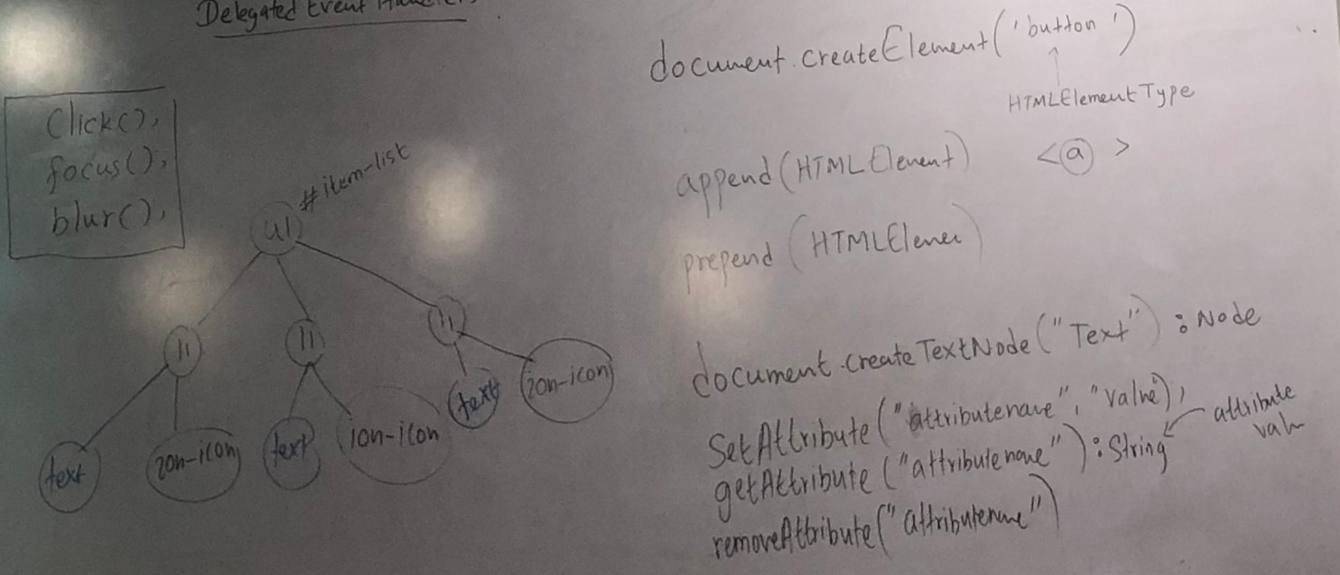 Delegated Event
Click(),
focus(),
blur(),
#item-list
ul
li
li
li
text
ion-icon
text
ion-icon
text
ion-icon
document.createElement('button')
HTMLElementType
append(HTMLElement)
<a>
prepend(HTMLElemer)
document.createTextNode("Text") : Node
SetAttribute("attributename", "value"),
getAttribute("attributename") : String
attribute
valu
removeAttribute("attributename")